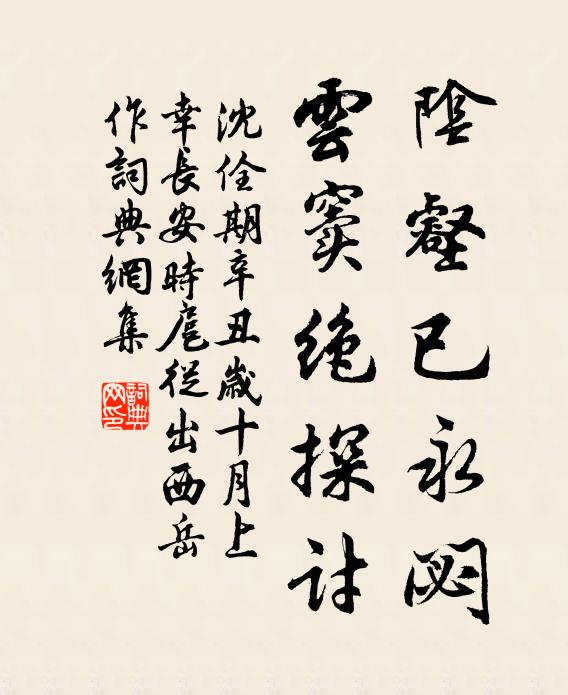 陰壑已永閟
雲竇絕探討
沈佺期辛丑歲十月上
幸長安時扈從出西岳
作詞典網集
詞典
网印